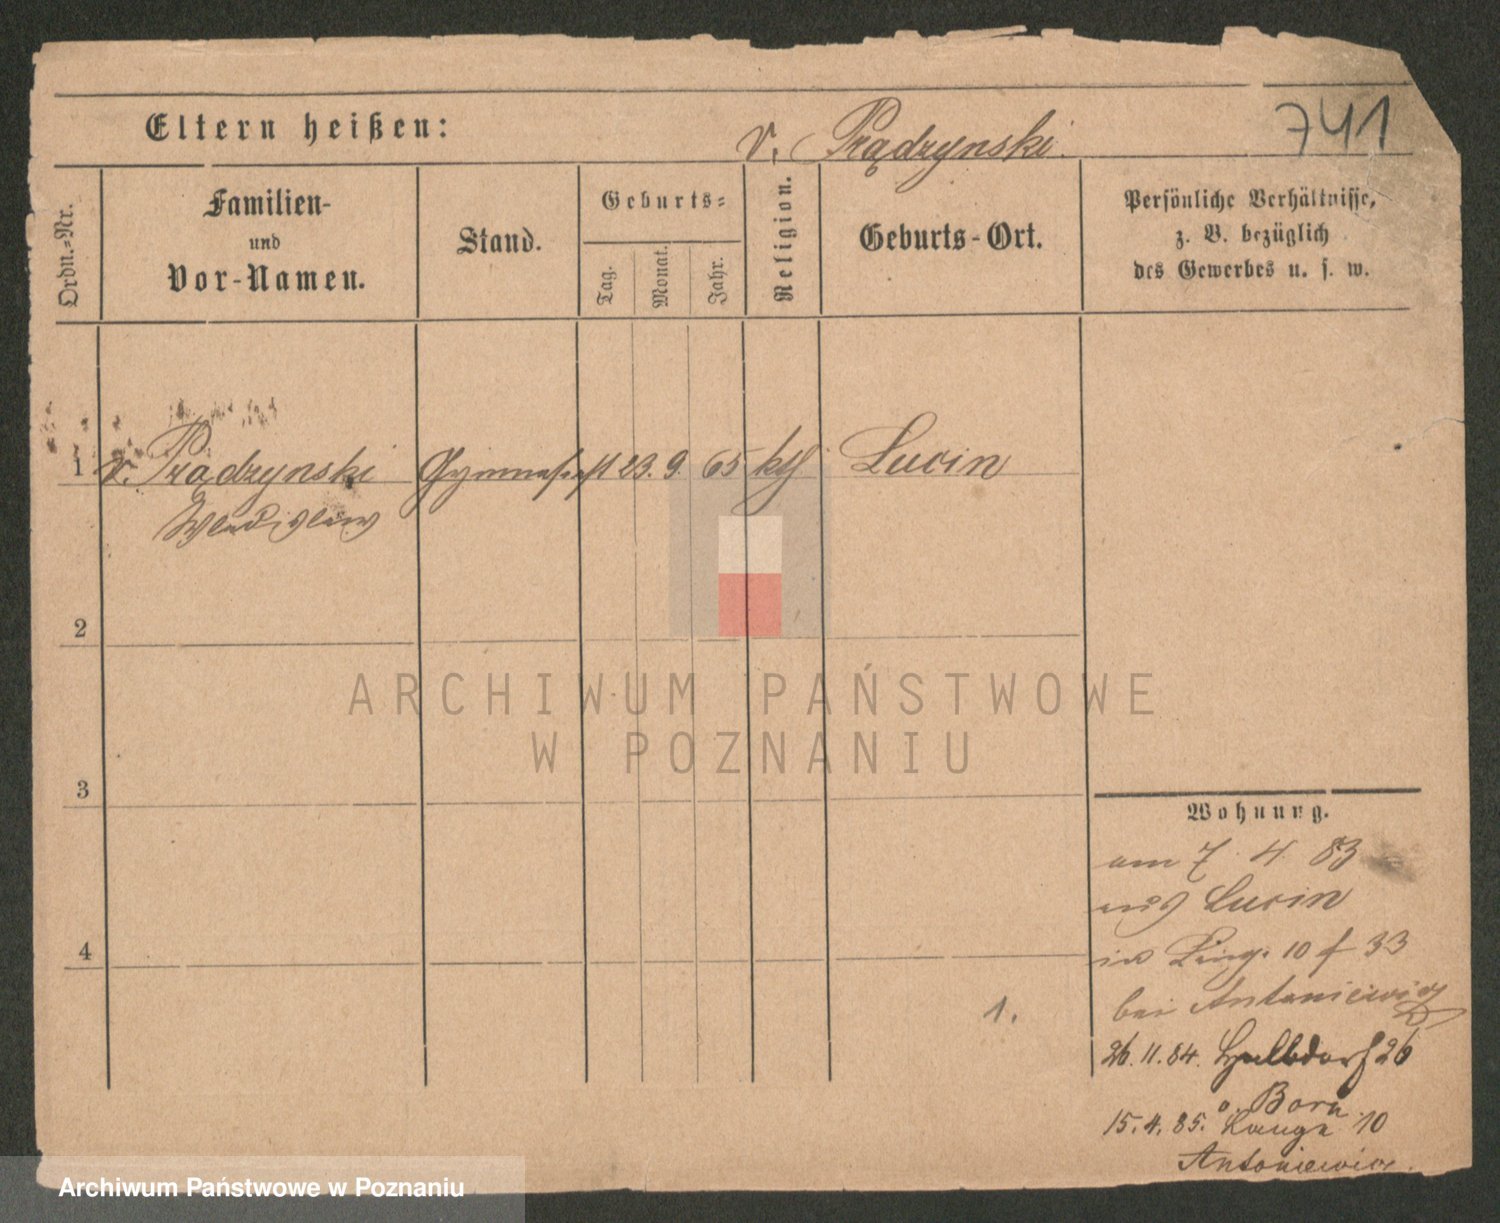 741
Eltern heißen: v. Prądzynski.
Ordn.-Nr.
Familien-
und
Vor-Namen.
Stand.
Geburts-
Tag.
Monat.
Jahr.
Religion.
Geburts-Ort.
Persönliche Verhältnisse,
z. B. bezüglich
des Gewerbes u. s. w.
1 v. Prądzynski Gymnasiast 23. 9. 65 kth Lucin
Wladislaw
2
3
4
1.
Wohnung.
am 7 4 83
aus Lucin
in 10 33
bei Antoniewicz
26. 11. 84. Halbdorf 26
o. Born
15. 4. 85. Lange 10
Antoniewicz.
ARCHIWUM PAŃSTWOWE
W POZNANIU
Archiwum Państwowe w Poznaniu